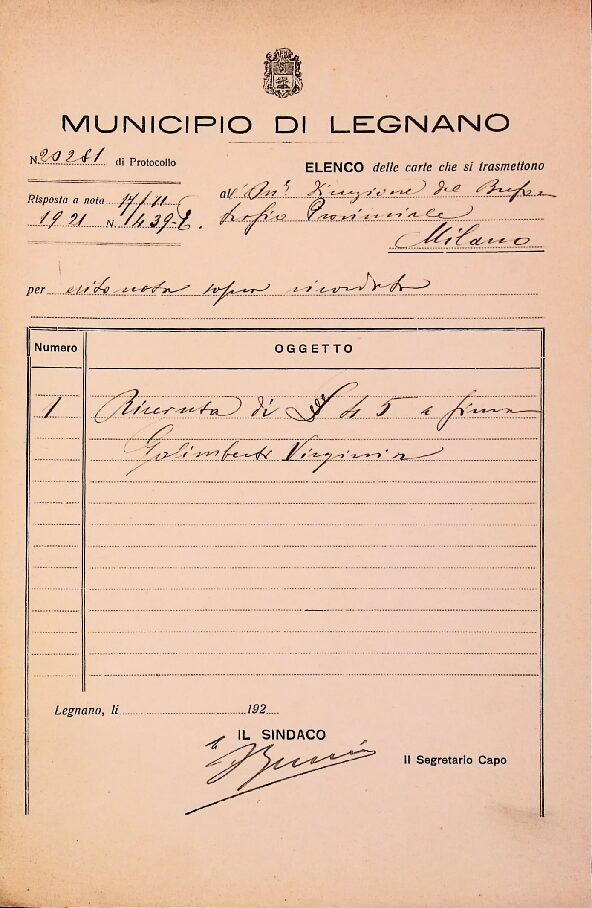 MUNICIPIO DI LEGNANO
N. 20281 di Protocollo
ELENCO delle carte che si trasmettono
Risposta a nota 17/11
1921 N. 1439-
all' Direzione del Brefo
trofio Provinciale
Milano
per esito nota sopra ricordata
Numero OGGETTO
1 Ricevuta di £ 45 a firma
Galimberti Virginia
Legnano, li 192
IL SINDACO
Il Segretario Capo